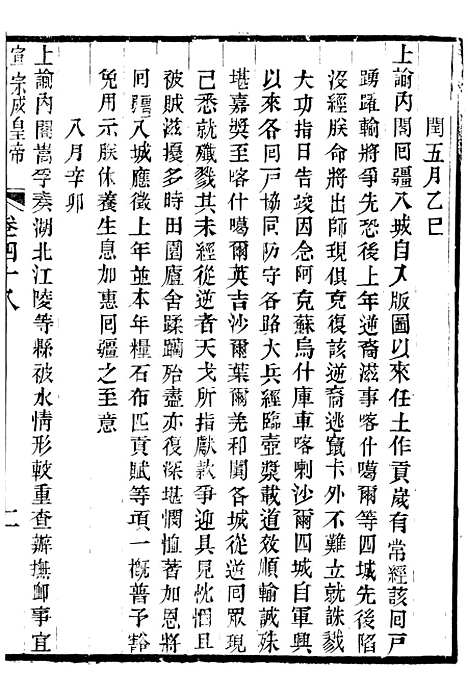 閏五月乙巳
上諭內閣回疆八城自入版圖以來任土作貢歲有常經該回戶
踴躍輸將爭先恐後上年逆裔滋事喀什噶爾等四城先後陷
沒經朕命將出師現俱克復該逆裔逃竄卡外不難立就誅戮
大功指日告竣因念阿克蘇烏什庫車喀喇沙爾四城自軍興
以來各回戶協同防守各路大兵經臨壺漿載道效順輸誠殊
堪嘉奬至喀什噶爾英吉沙爾葉爾羌和闐各城從逆回眾現
已悉就殲戮其未經從逆者天戈所指獻款爭迎具見忱悃且
彼賊滋擾多時田園廬舍蹂躪殆盡亦復深堪憫恤著加恩將
回疆八城應徵上年並本年糧石布匹貢賦等項一概普予豁
免用示朕休養生息加惠回疆之至意
八月辛卯
上諭內閣嵩孚奏湖北江陵等縣被水情形較重查辦撫卹事宜
宣宗成皇帝
卷四十八
二